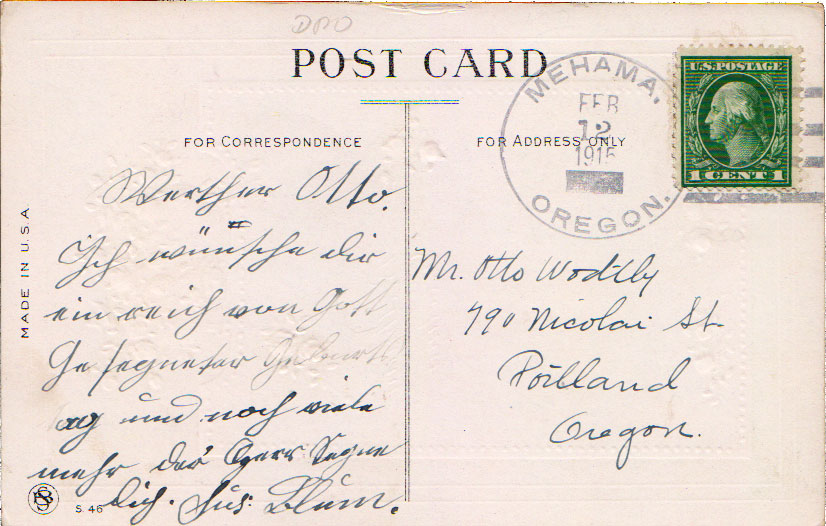 DPO
POST CARD
FOR CORRESPONDENCE
FOR ADDRESS ONLY
MEHAMA,
FEB
12
1915
OREGON.
U.S. POSTAGE
1 CENT 1
MADE IN U.S.A.
Werther Otto.
Ich wünsche dir
ein reich von Gott
Gesegneter Geburtst
ag und noch viele
mehr der Herr Segne
dich. Gus: Blum.
Mr. Otto Wodtly
790 Nicolai St.
Portland
Oregon.
S 46